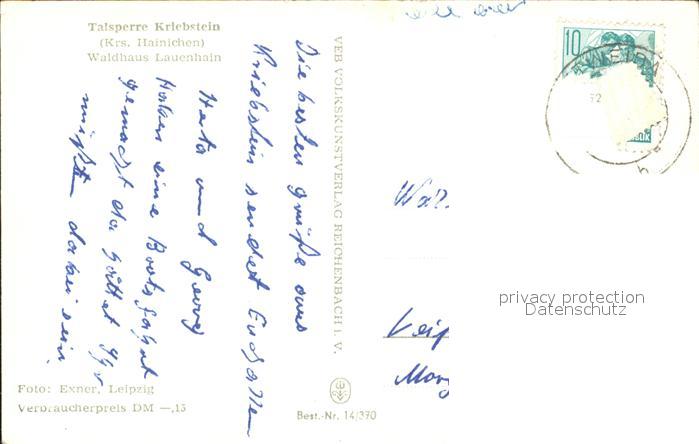 Talsperre Kriebstein
(Krs. Hainichen)
Waldhaus Lauenhain
Die besten Grüße aus
Kriebstein sendet Euch allen
Herta und Georg
Haben eine Bootsfahrt
gemacht da hättet Ihr
müßen dabei sein
VEB VOLKSKUNSTVERLAG REICHENBACH i. V.
Foto: Exner, Leipzig
Verbraucherpreis DM —,15
Best.-Nr. 14/370
10
privacy protection
Datenschutz